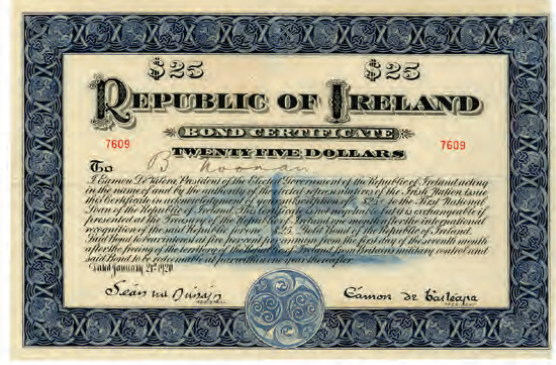 $25 $25
REPUBLIC OF IRELAND
BOND CERTIFICATE
7609 7609
TWENTY FIVE DOLLARS
To B Noonan
I Eamon De Valera President of the Elected Government of the Republic of Ireland acting
in the name of and by the authority of the elected representatives of the Irish Nation issue
this Certificate in acknowledgment of your subscription of $25 to the First National
Loan of the Republic of Ireland. This Certificate is not negotiable but is exchangeable if
presented at the Treasury of the Republic of Ireland one month after the international
recognition of the said Republic for one $25 Gold Bond of the Republic of Ireland.
Said Bond to bear interest at five per cent per annum from the first day of the seventh month
after the freeing of the territory of the Republic of Ireland from Britain's military control and
said Bond to be redeemable at par within one year thereafter.
Dated January 21st 1920
Eamon de Valera